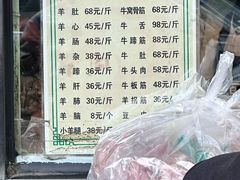 羊肚 68元/斤 牛窝骨筋 68元/斤
羊心 45元/斤 牛舌 98元/斤
羊肠 48元/斤 牛蹄筋 48元/斤
羊杂 38元/斤 牛肚 68元/斤
羊蹄 36元/斤 牛头肉 58元/斤
羊肝 36元/斤 牛板筋 48元/斤
羊肺 30元/斤 羊
羊脑 8元/个 豆
小羊腿 38元/斤